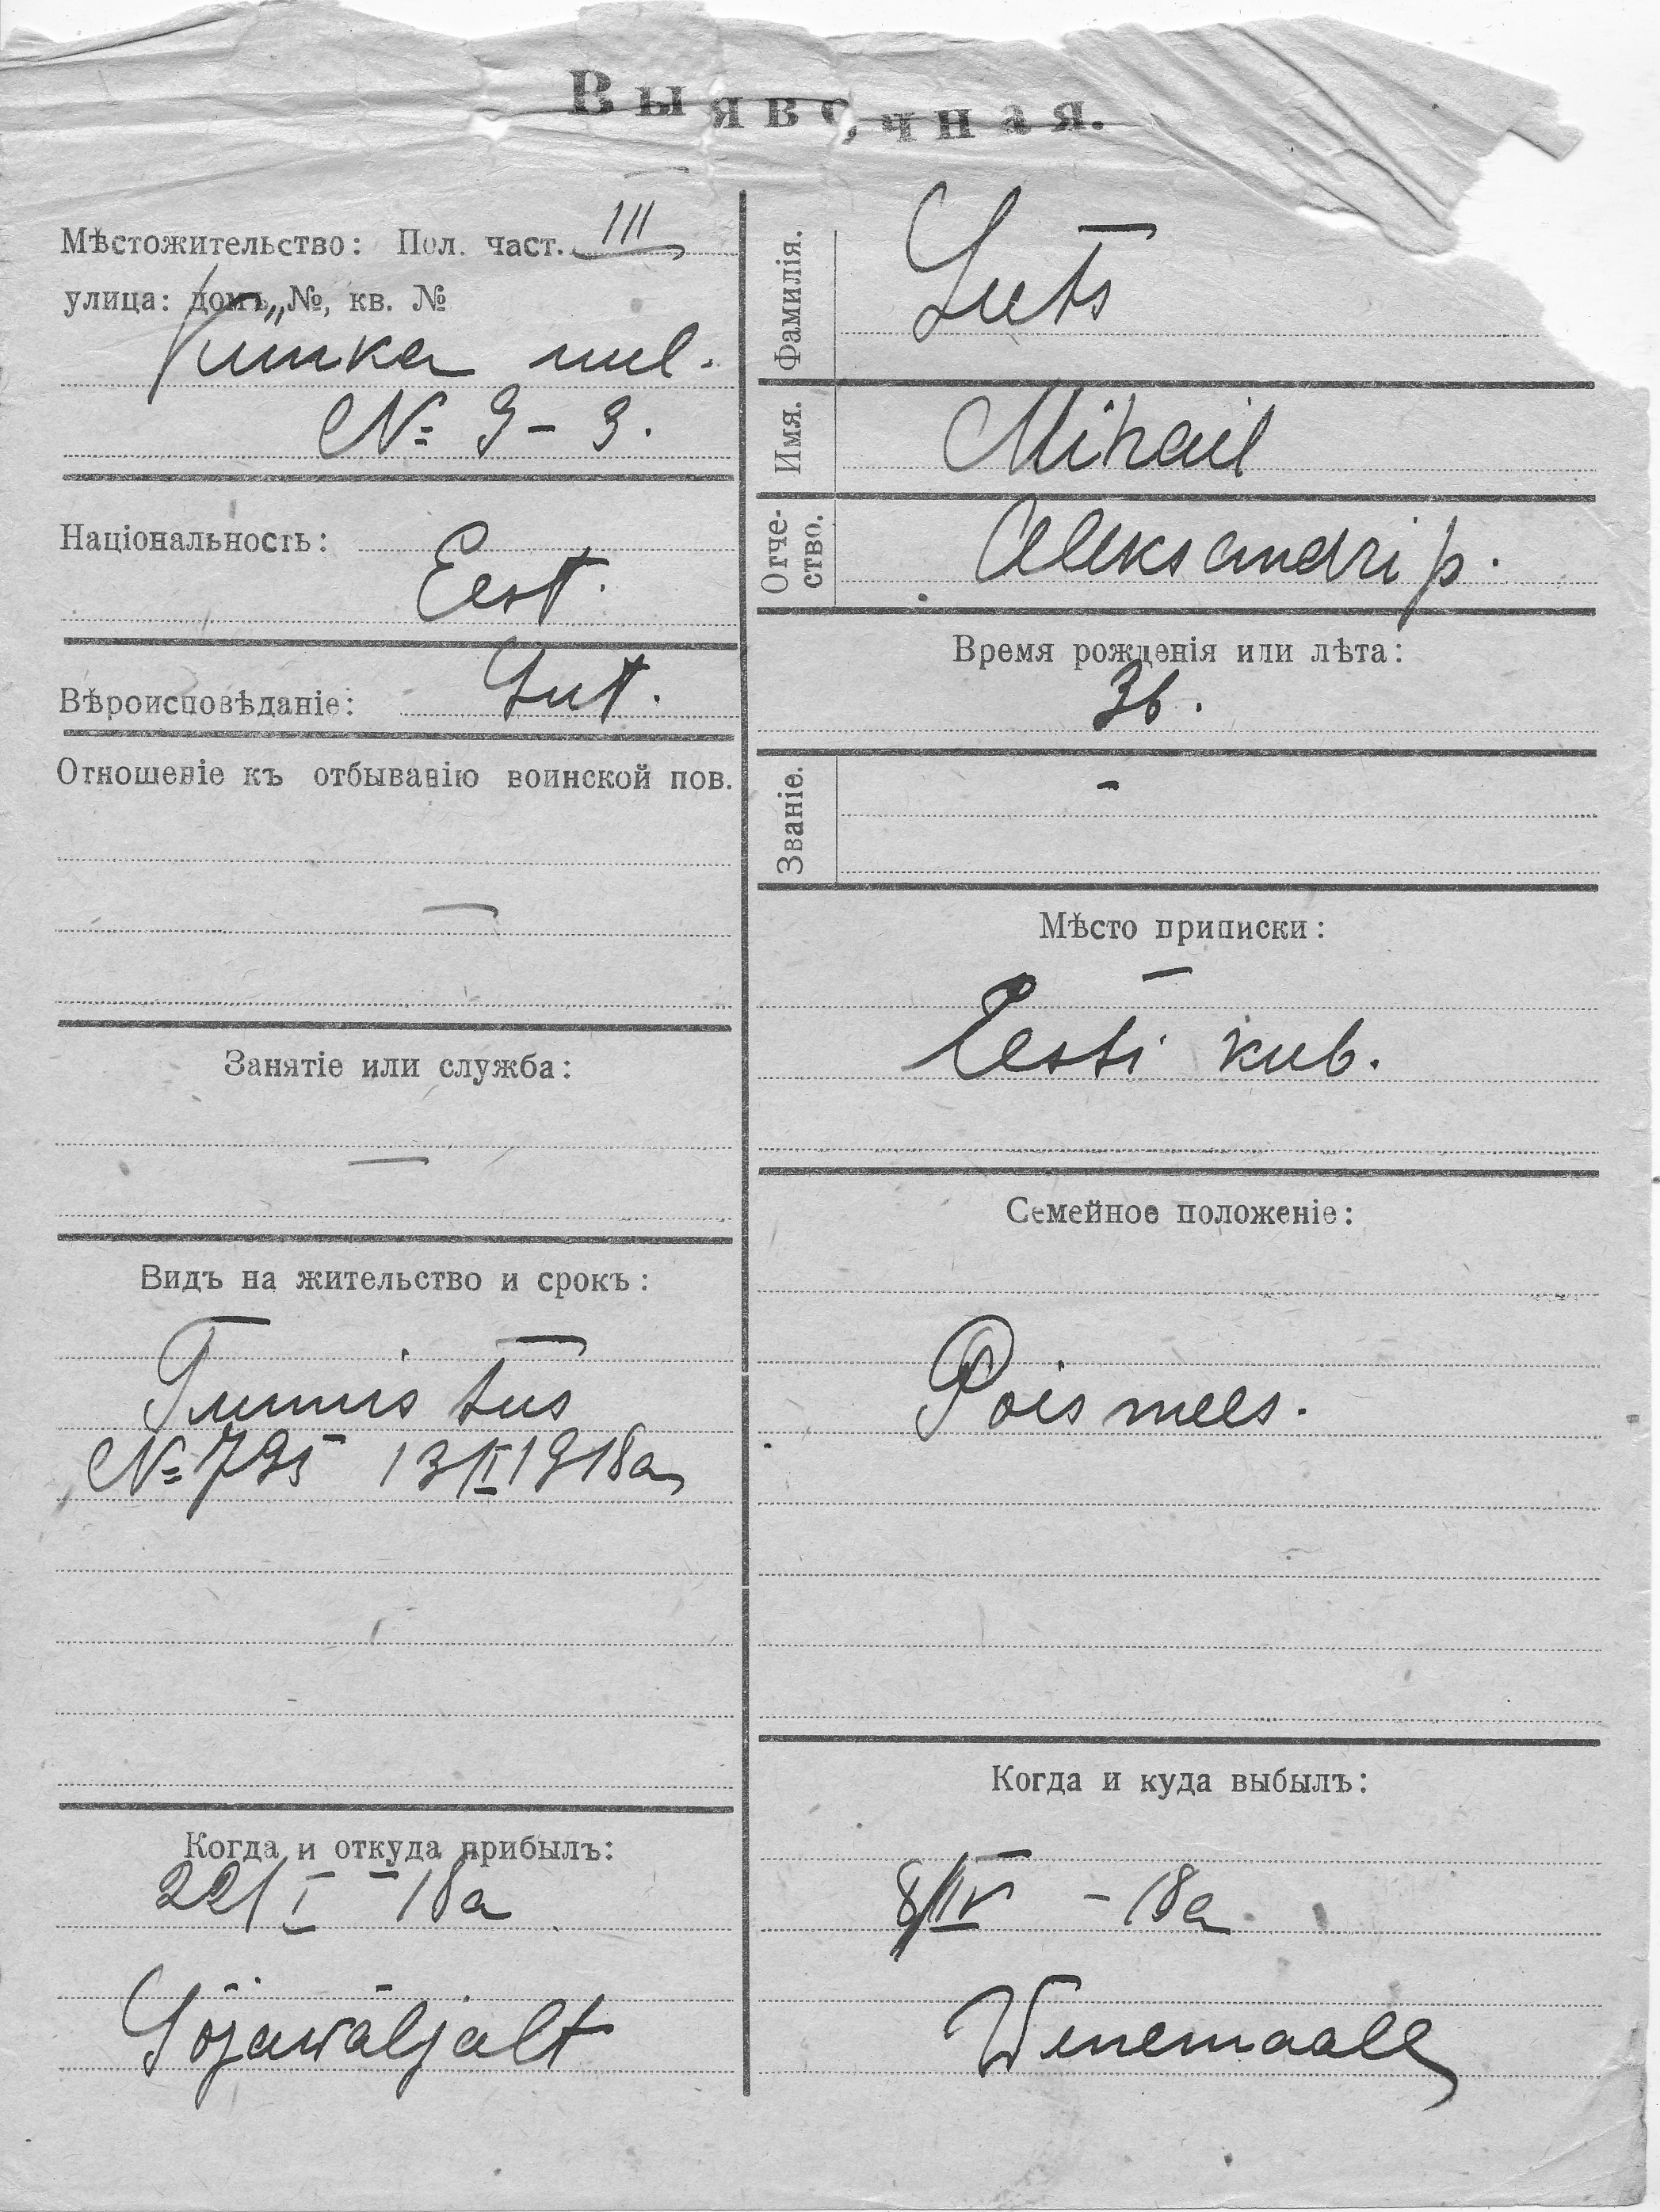 Выявочная.
Мѣстожительство: Пол. част. III
улица: домъ, №, кв. №
Künka uul.
№ 9 – 9.
Національность:
Eest.
Вѣроисповѣданіе: Lut.
Отношеніе къ отбыванію воинской пов.
—
Занятіе или служба:
—
Видъ на жительство и срокъ:
Tunnistus
№ 795 13/II 1918a
Когда и откуда прибылъ:
22/I – 18a
Sõjawäljalt
Фамилія. Luts
Имя. Mihail
Отче-
ство. Aleksandri p.
Время рожденія или лѣта:
36.
Званіе. -
Мѣсто приписки:
Eesti kub.
Семейное положеніе:
Poismees.
Когда и куда выбылъ:
8/IV – 18a
Wenemaale